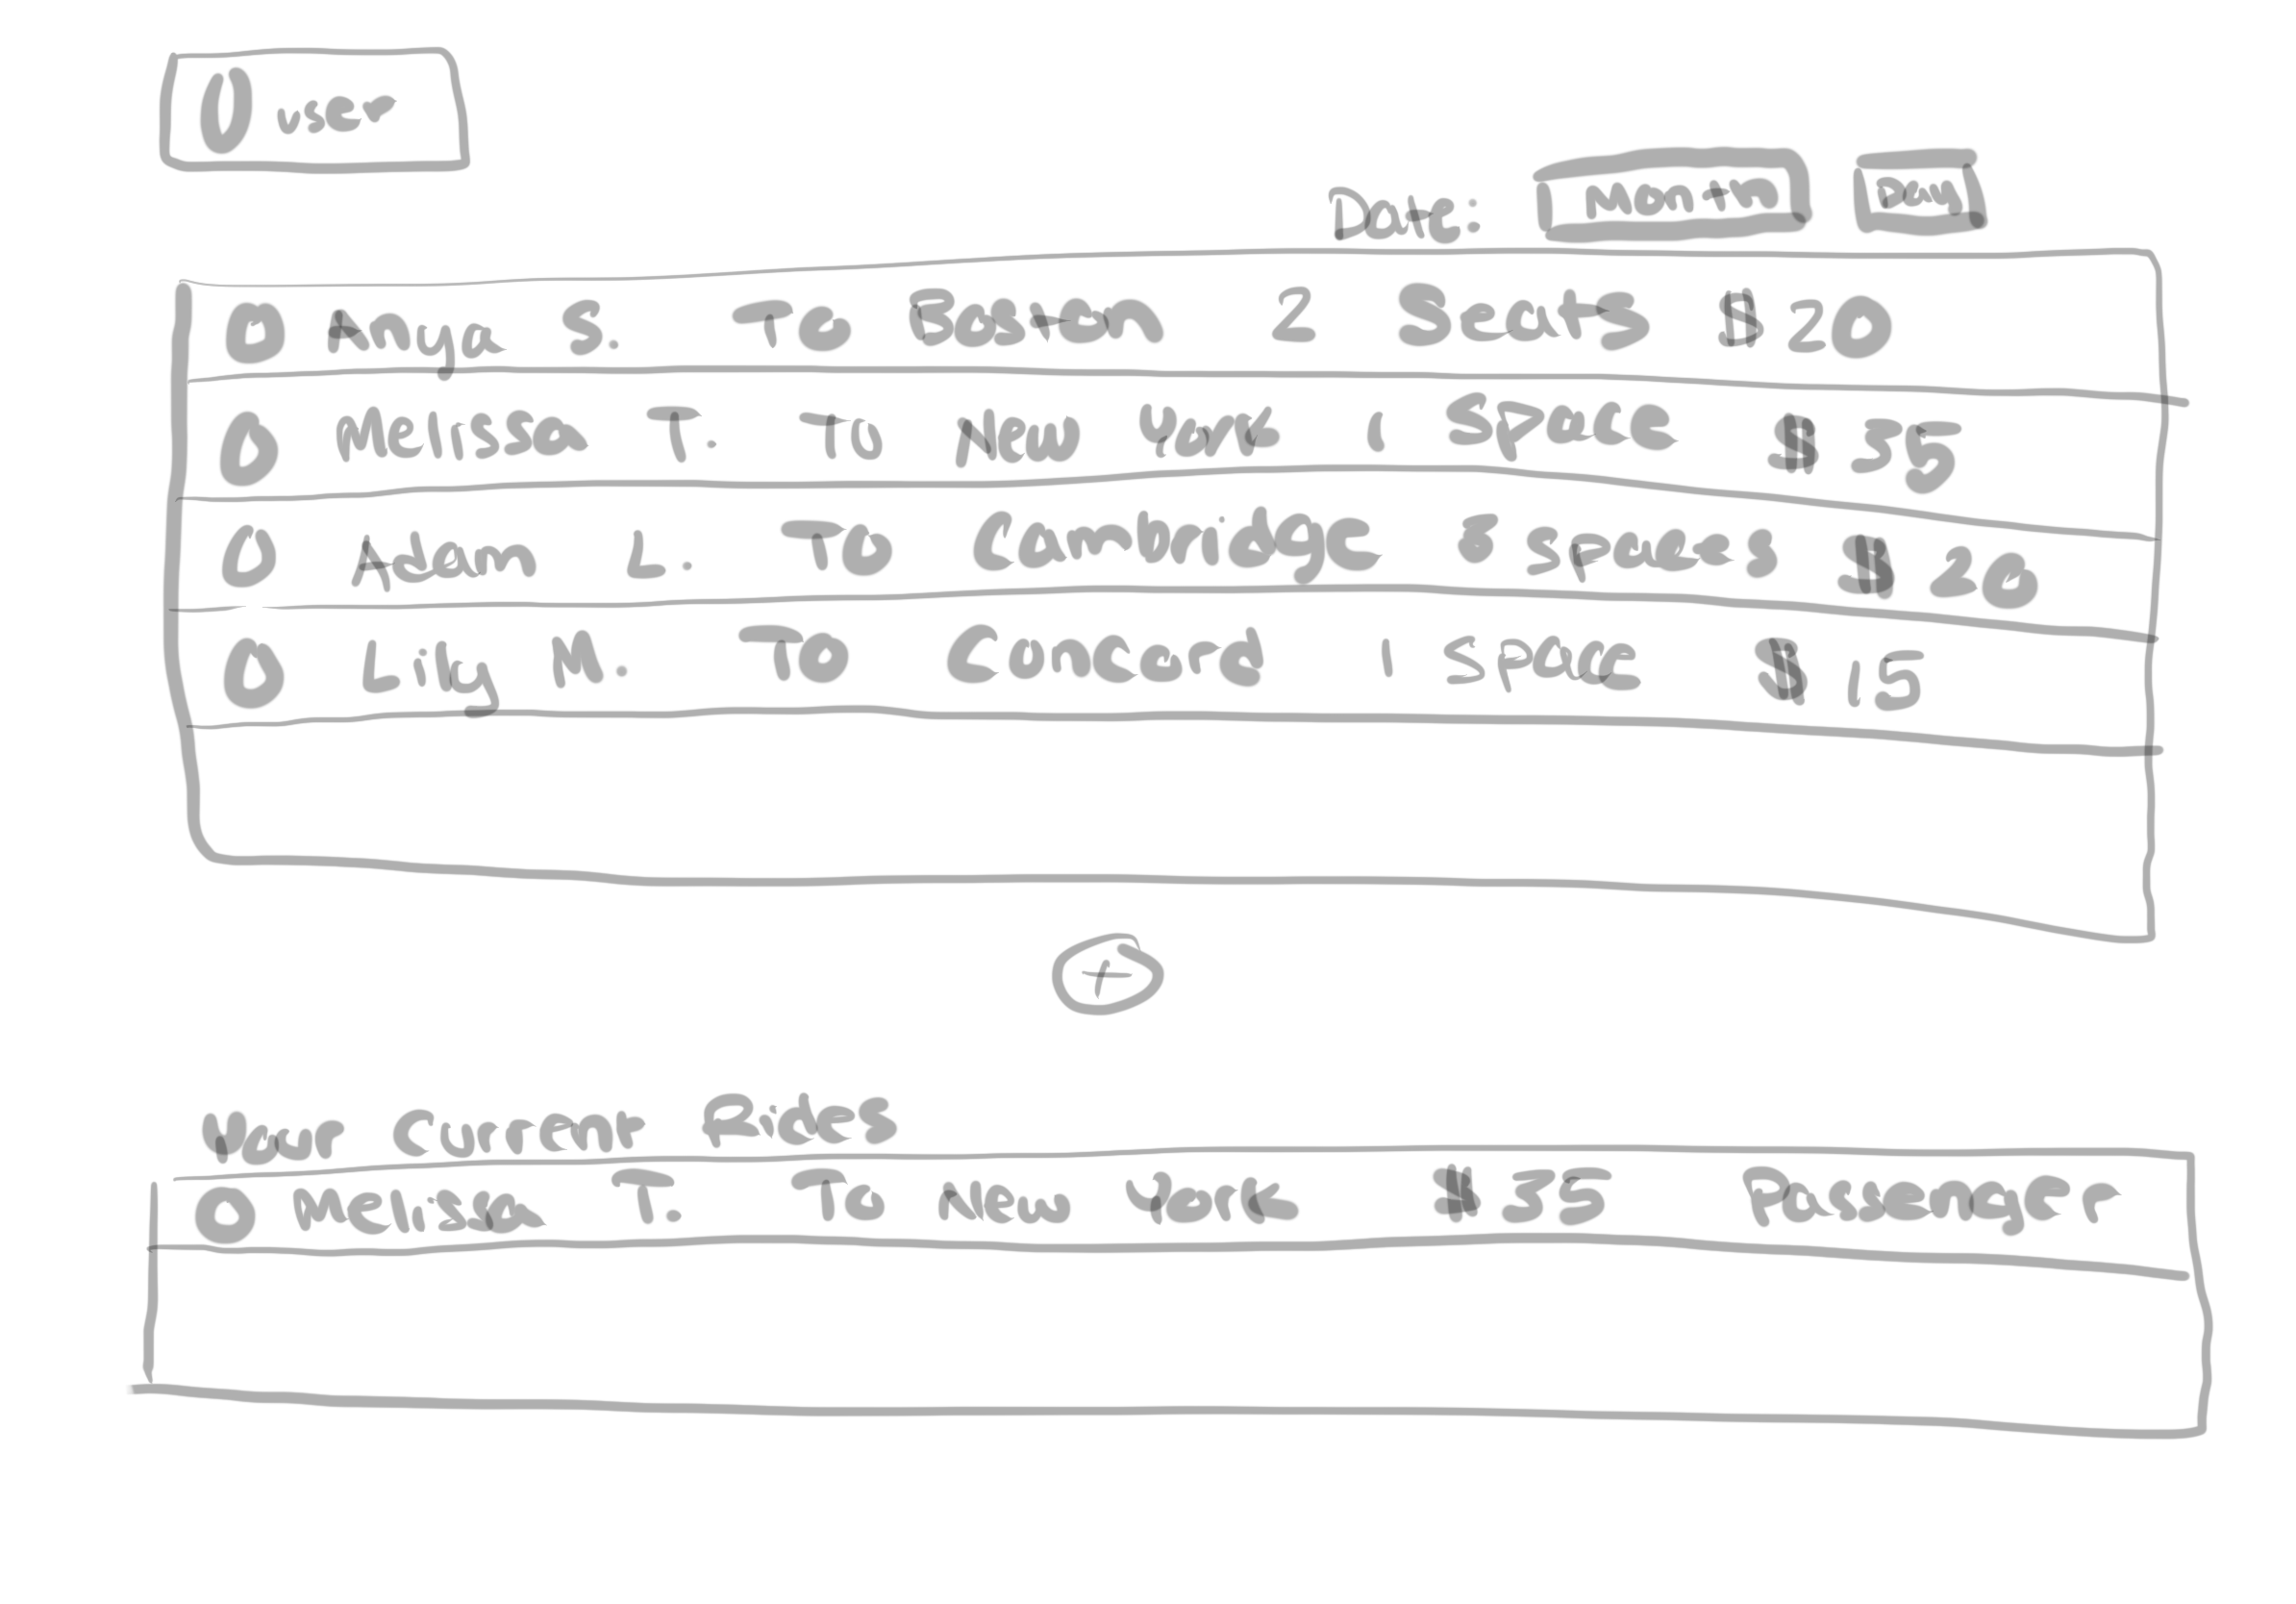 user
Date: Month Day
Anya S. To Boston 2 Seats $20
Melissa T. To New York 1 Space $35
Adam L. To Cambridge 3 Spaces $20
Lily M. To Concord 1 space $15
+
Your Current Rides
Melissa T. To New York $35 Passenger